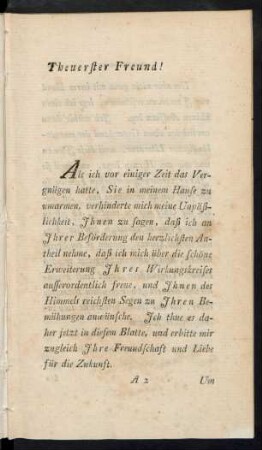 Theuerster Freund!
Als ich vor einiger Zeit das Ver-
gnügen hatte, Sie in meinem Hause zu
umarmen, verhinderte mich meine Unpäß-
lichkeit, Ihnen zu sagen, daß ich an
Ihrer Beförderung den herzlichsten An-
theil nehme, daß ich mich über die schöne
Erweiterung Ihres Wirkungskreises
außerordentlich freue, und Ihnen des
Himmels reichsten Segen zu Ihren Be-
mühungen anwünsche. Ich thue es da-
her jetzt in diesem Blatte, und erbitte mir
zugleich Ihre Freundschaft und Liebe
für die Zukunft.
A 2 Um